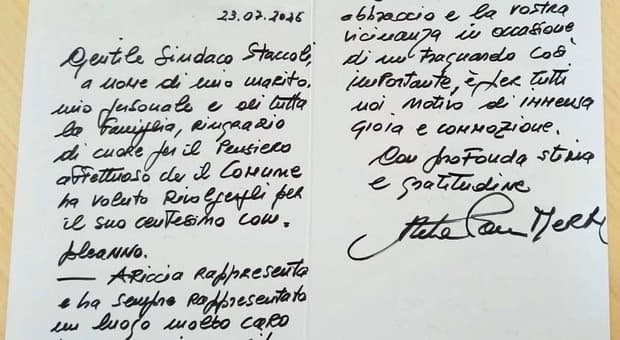 23.07.2026
Gentile Sindaco Staccoli,
a nome di mio marito,
mio personale e di tutta
la famiglia, ringrazio
di cuore per il pensiero
affettuoso che il Comune
ha voluto rivolgergli per
il suo centesimo com-
pleanno.
— Ariccia rappresenta
e ha sempre rappresentato
un luogo molto caro
abbraccio e la vostra
vicinanza in occasione
di un traguardo così
importante, è per tutti
noi motivo di immensa
gioia e commozione.
Con profonda stima
e gratitudine